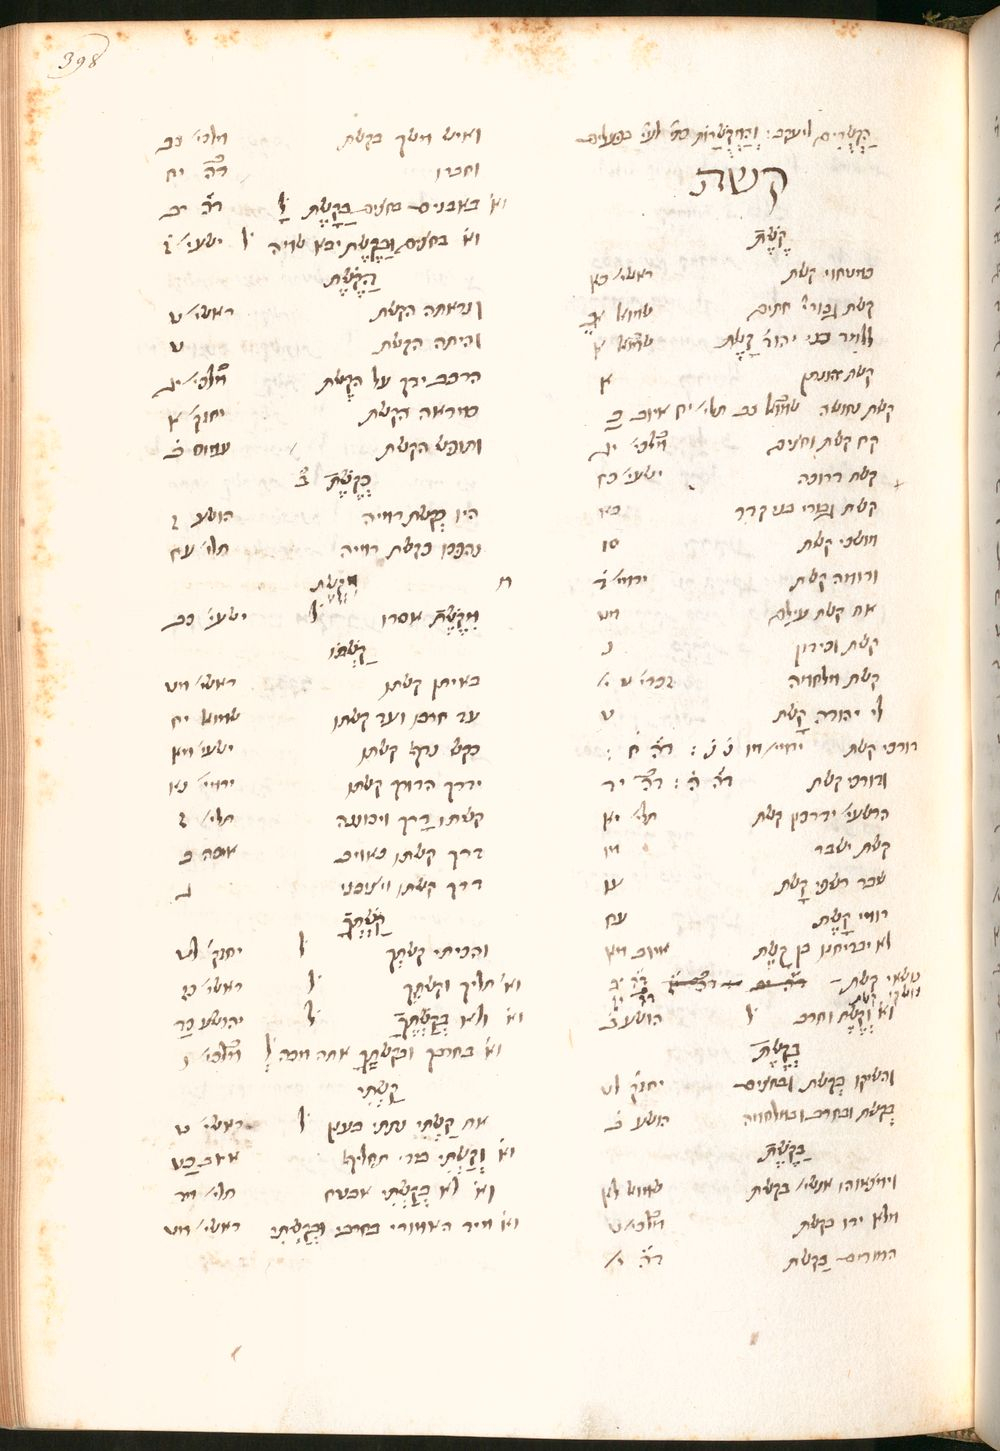 398
הַקְּשֻׁרִים ליעקב: וְהַמְקֻשָּׁרוֹת
קשת
קֶשֶׁת
כמטחוי קשת ראשי׳ כא
קשת גבורי׳ חתים שמוא׳ א ב
ללמד בני יהודה קָשֶׁת
קשת יהונתן א
קשת נחושה שמוא׳ כב תלי׳ יח איוב כ
קח קשת וחצים מלכי׳ יג
קשת דרוכה ישעי׳ כח
קשת גבורי בני קדר כא
מושכי קשת סו
ורומה קשת ירמי׳ ד
את קשת עילם מט
קשת וכידון נ
קשת מלחמה זכרי׳ ט י׳
לי יהודה קשת ט
דורכי קשת ירמי׳ מו נ נ: דה ח:
ודורכי קשת דה ה: דה יד
הרשעי׳ ידרכון קשת תלי׳ יא
קשת ישבר מו
שבר רשפי קָשֶׁת עו
רומי קָשֶׁת עח
לא יבריחנו בן קָשֶׁת איוב מא
נושאי קשת דה יב
נושקי קשת
וא׳ וְקֶשֶׁת וחרב ל׳ הושע ב
בְּקֶשֶׁת
והשיקו בְּקשת ובחצים יחזק׳ לט
בְּקשת ובחרב ובמלחמה הושע ב
בַּקֶּשֶׁת
וימצאוהו אנשי׳ בקשת שמוא׳ לא
מלא ידו בקשת מלכי׳ ט
המורים בַּקשת דה י׳
ואיש משך בקשת מלכי׳ כב
וחברו דה יח
וא׳ באבנים בחצים בַּקָּשֶׁת ל׳ דה יב
וא׳ בחצים וּבַקֶּשֶׁת יבא שמה ל׳ ישעי׳ ז
הַקֶּשֶׁת
ונראתה הקשת ראשי׳ ט
והיתה הקשת ט
הרכב ידך על הקשת מלכי׳ יג
כמראה הקשת יחזק׳ א
ותופש הקשת עמוס ב
כְּקֶשֶׁת ב׳
היו כְּקשת רמיה הושע ז
נהפכו כקשת רמיה תלי׳ עח
מקשת
מִקֶּשֶׁת אסרו ל׳ ישעי׳ כב
קַשְׁתּוֹ
באיתן קשתו ראשי׳ מט
עד חרבו ועד קשתו שמוא׳ יח
כקש נדף קשתו ישעי׳ מא
ידרך הדורך קשתו ירמי׳ נא
קשתו דרך ויכוננה תלי׳ ז
דרך קשתו כאויב איכה ב
דרך קשתו ויציבני ג
קַשְׁתְּךָ
והכיתי קשתך ל׳ יחזק׳ לט
וא׳ תליך וקשתך ל׳ ראשי׳ כז
וא׳ ולא בְקַשְׁתֶּךָ ל׳ יהושע כד
וא׳ בחרבך ובקשתך אתה מכה ל׳ מלכי׳ ו
קַשְׁתִּי
את קַשְׁתִּי נתתי בענן ל׳ ראשי׳ ט
וא׳ וְקַשְׁתִּי בידי תחליף איוב כט
וא׳ לא בְקַשְׁתִּי אבטח תלי׳ מד
וא׳ מיד האמורי בחרבי וּבְקַשְׁתִּי ראשי׳ מח